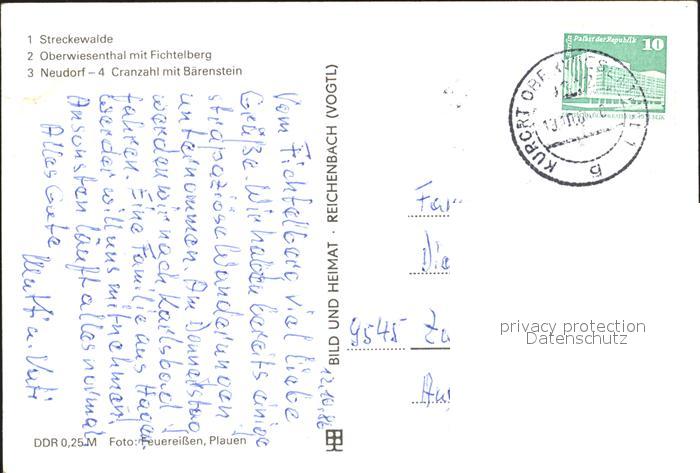 1 Streckewalde
2 Oberwiesenthal mit Fichtelberg
3 Neudorf – 4 Cranzahl mit Bärenstein
Vom Fichtelberg viel liebe
Grüße. Wir haben bereits einige
strapaziöse Wanderungen
unternommen. Am Donnerstag
werden wir nach Karlsbad
fahren. Eine Familie aus Hagen
will uns mitnehmen!
Ansonsten läuft alles normal
Alles Gute
Mutti u. Vati
12.10.86
BILD UND HEIMAT · REICHENBACH (VOGTL)
DDR 0,25 M Foto: Feuereißen, Plauen
Palast der Republik 10
KURORT OBERWIES
9545
privacy protection
Datenschutz